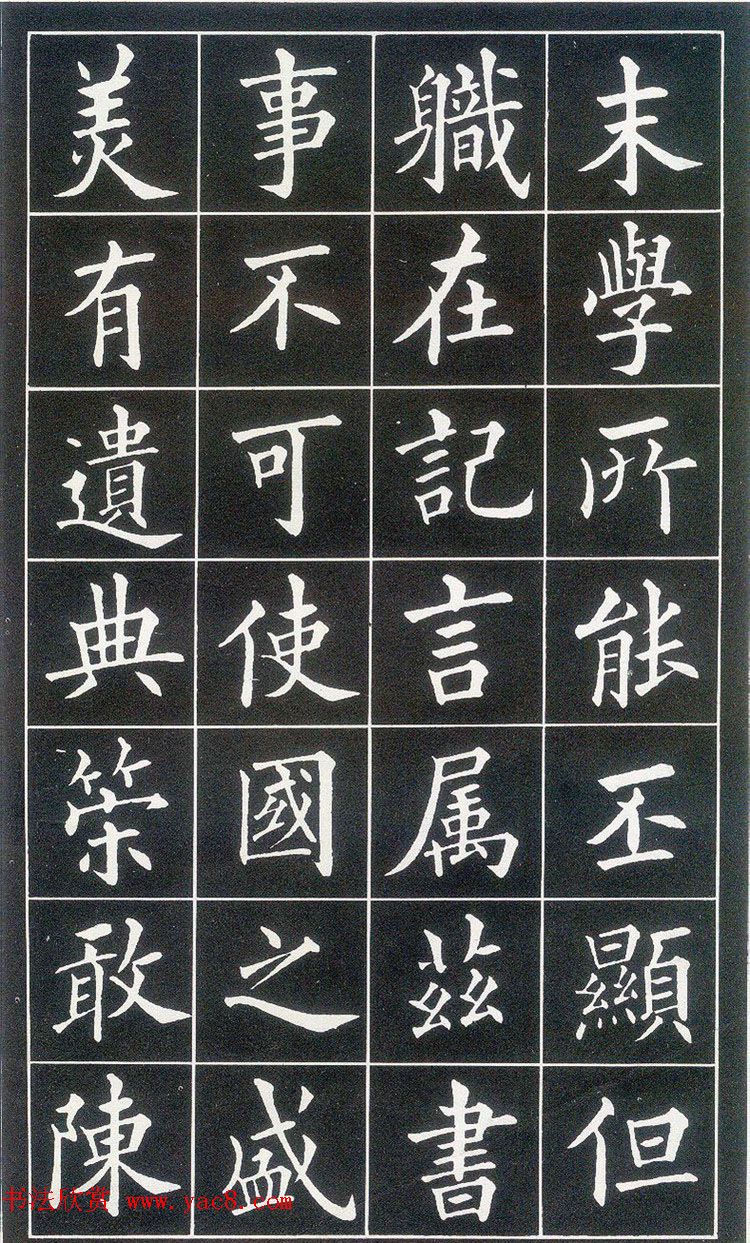 末學所能丕顯但
職在記言属茲書
事不可使國之盛
美有遺典策敢陳
书法欣赏 www.yac8.com